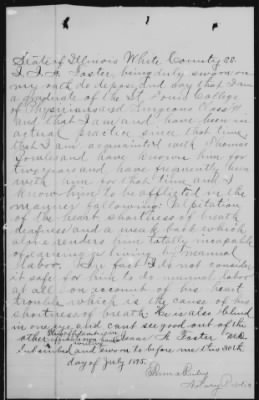 State of Illinois White County SS.
I, I. A. Foster being duly sworn on
my oath do depose and say that I am
a graduate of the St. Louis College
of Physicians and Surgeons Class
and that I am and have been in
actual practice since that time
that I am acquainted with Thomas
and have known him for
two years and have frequently been
with him for that time and I
know him to be afflicted in the
manner following: Palpitation
of the heart, shortness of breath
deafness and a weak back which
alone renders him totally incapable
of earning a living by manual
labor. In fact I do not consider
it safe for him to do manual labor
at all on account of his heart
trouble which is the cause of his
shortness of breath. He is also blind
in one eye and cant see good out of the
other
Isaac A Foster M.D.
Subscribed and sworn to before me this
day of July 1895.
Notary Public